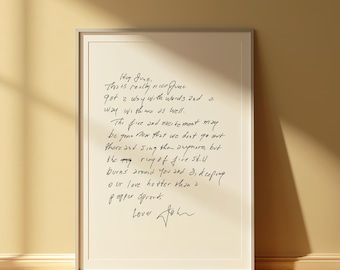 Hey June,
That's really nice June
got a way with words and a
way with me as well.
The fire and excitement may
be gone now that we don't go out
there and sing them anymore, but
the ring of fire still
burns around you and I, keeping
our love hotter than a
pepper sprout.
Love John